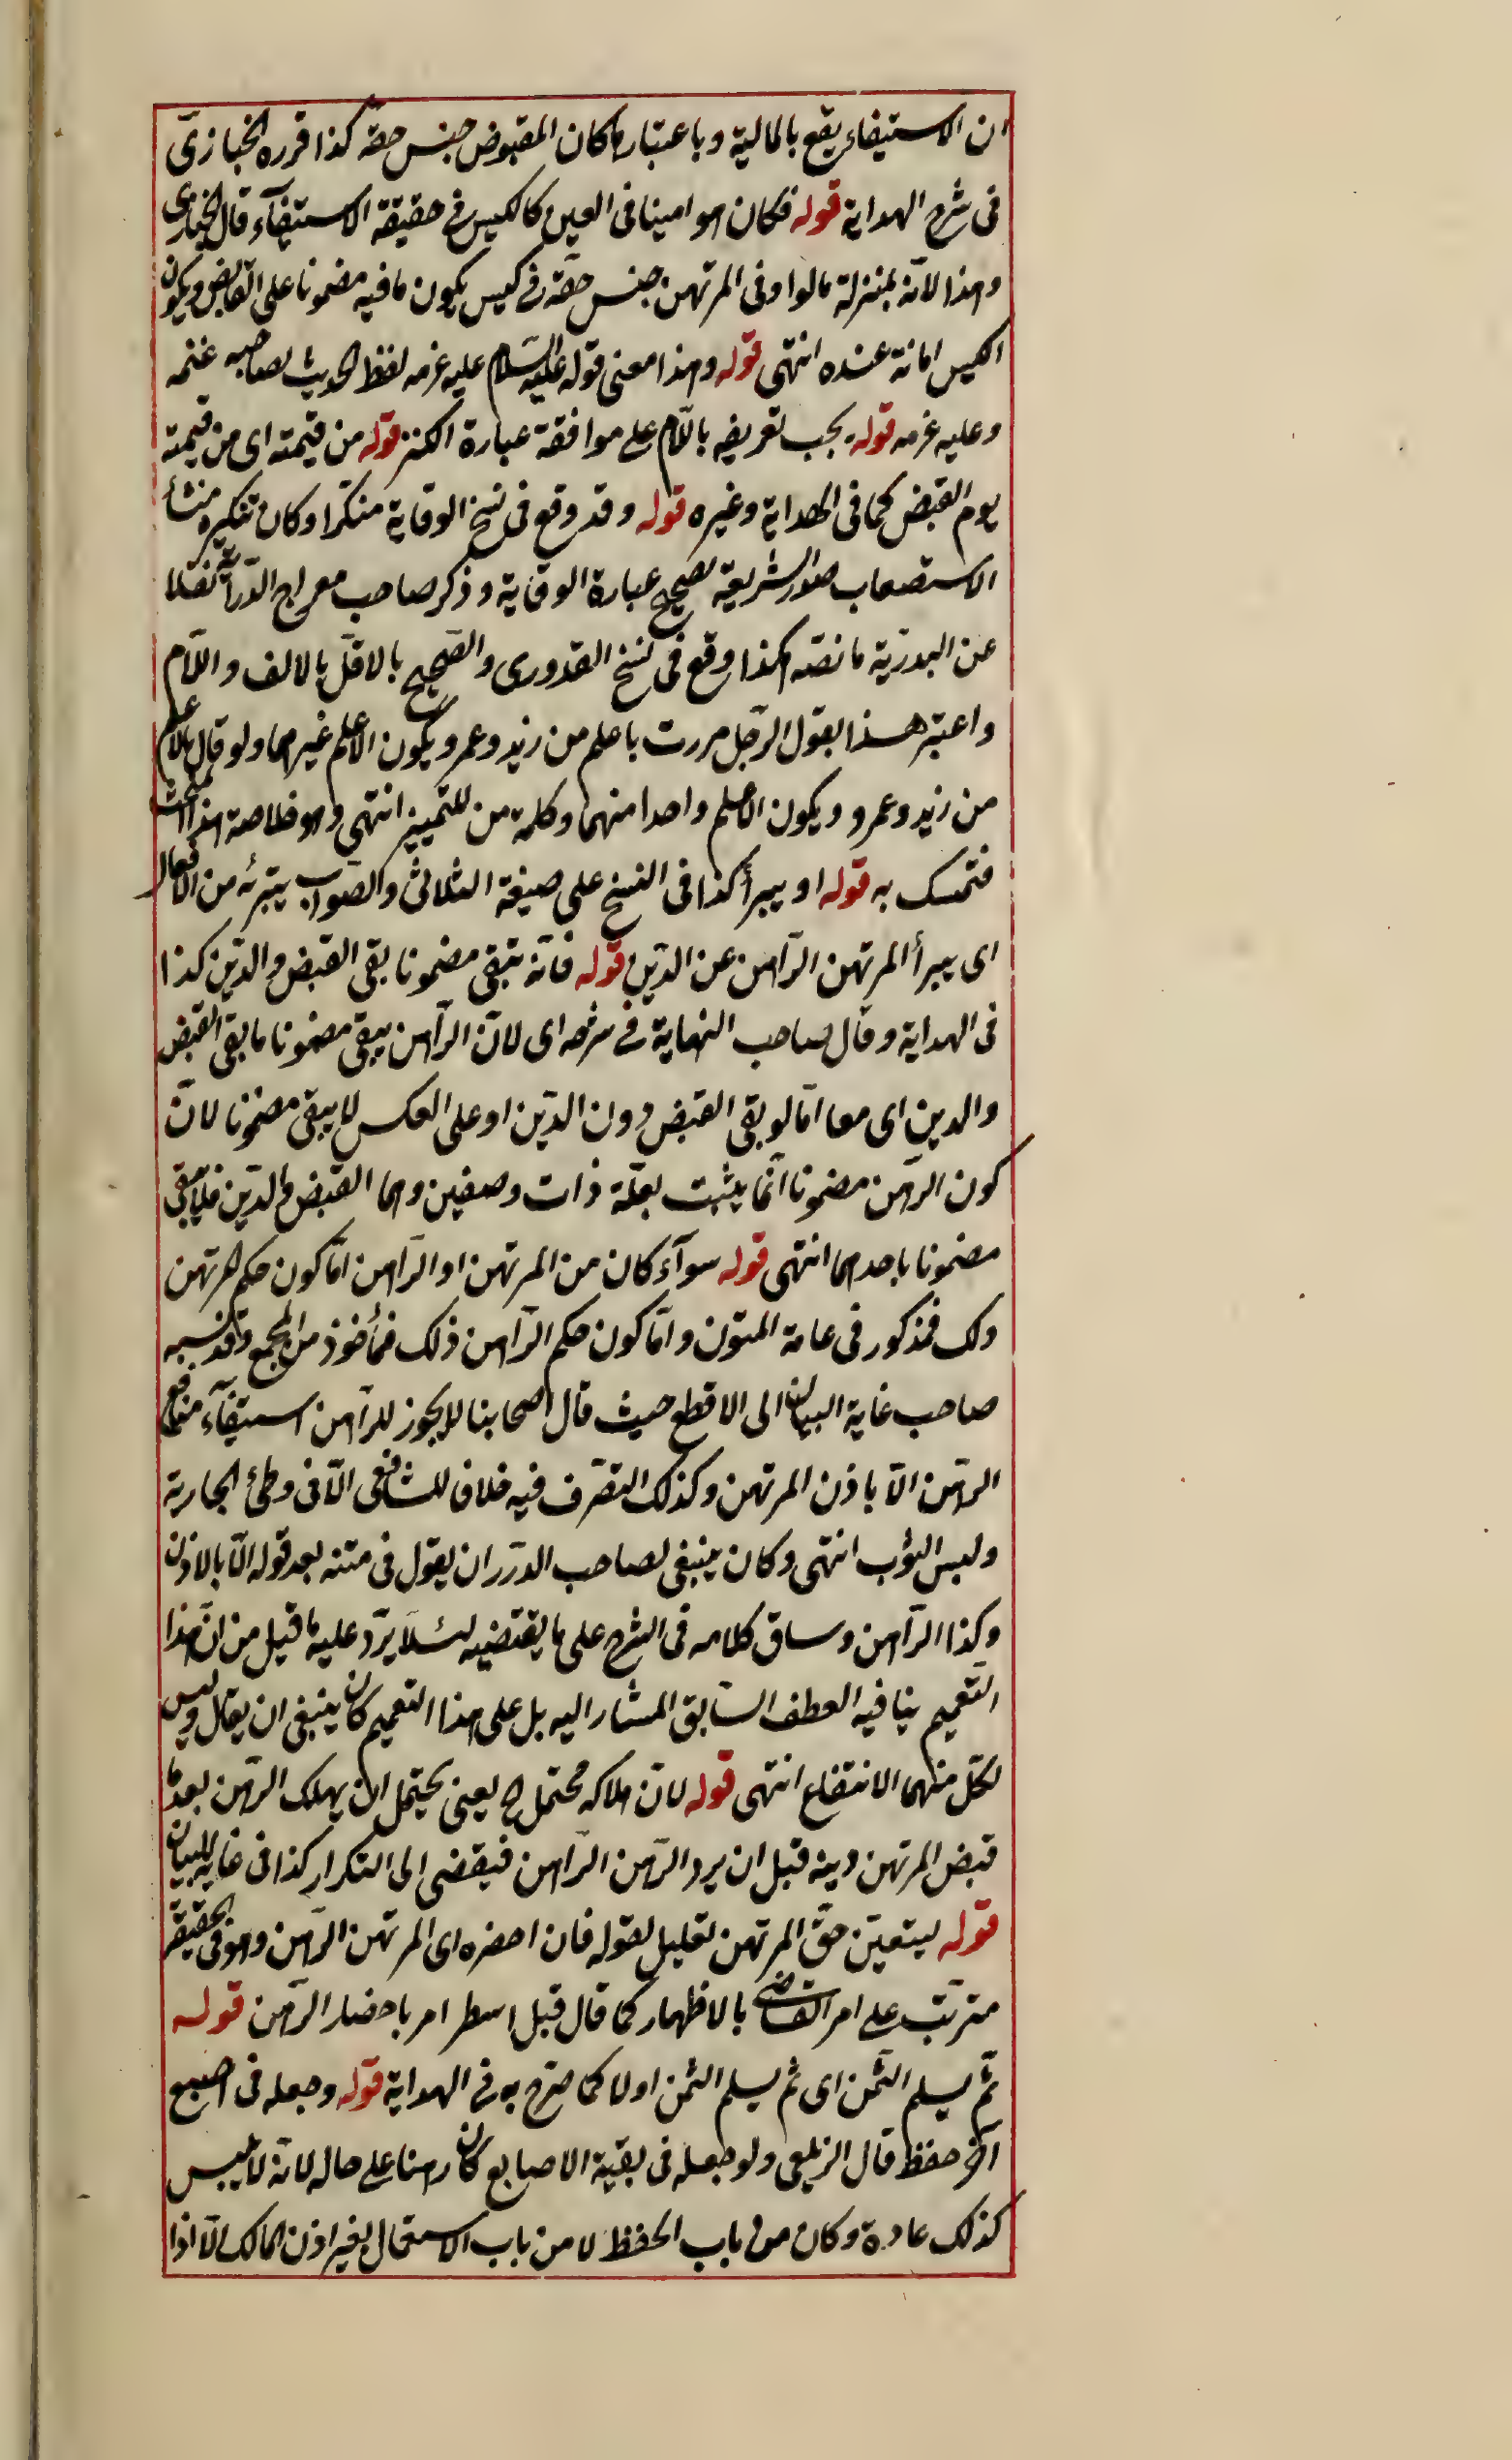 ان الاستيفاء يقع بالمالية وباعتبارها كان المقبوض جنس حقه كذا قرره الخبازى
فى شرح الهداية قوله فكان هو امينا فى العين كالكيس فى حقيقة الاستيفآء قال الخبازى
وهذا لانه بمنزلة ما لو اوفى المرتهن جنس حقه فى كيس يكون ما فيه مضمونا على القابض ويكون
الكيس امانة عنده انتهى قوله وهذا معنى قوله عليه السلام عليه غرمه لفظ الحديث لصاحبه غنمه
وعليه غرمه قوله يجب تعريفه باللام على موافقة عبارة الكنز قوله من قيمته اى من قيمته
يوم القبض كما فى الهداية وغيره قوله وقد وقع فى نسخ الوقاية منكرا وكان تنكيره منشأ
الاستصعاب صدر الشريعة تصحيح عبارة الوقاية وذكر صاحب معراج الدراية نقلا
عن البدرية ما نصه هكذا وقع فى نسخ القدورى والصحيح بالاقل بالالف واللام
واعتبر هذا بقول الرجل مررت باعلم من زيد وعمرو يكون الاعلم غيرهما ولو قال بالاعلم
من زيد وعمرو ويكون الاعلم واحدا منهما وكلمة من للتمييز انتهى وهو خلاصة هذا المبحث
فتمسك به قوله او يبرأ كذا فى النسخ على صيغة الثلاثى والصواب يبرئه من الافعال
اى يبرأ المرتهن الراهن عن الدين قوله فانه يبقى مضمونا بقى القبض والدين كذا
فى الهداية وقال صاحب النهاية فى شرحه اى لان الراهن يبقى مضمونا ما بقى القبض
والدين اى معا اما لو بقى القبض دون الدين او على العكس لا يبقى مضمونا لان
كون الرهن مضمونا انما يثبت بعلة ذات وصفين وهما القبض والدين فلا يبقى
مضمونا باحدهما انتهى قوله سوآء كان من المرتهن او الراهن اما كون حكم المرتهن
ذلك فمذكور فى عامة المتون واما كون حكم الراهن ذلك فمأخوذ من المجمع وقد نسبه
صاحب غاية البيان الى الاقطع حيث قال اصحابنا لا يجوز للراهن استيفآء منافع
الرهن الا باذن المرتهن وكذلك التصرف فيه خلافا للشافعى الا فى وطئ الجارية
ولبس الثوب انتهى وكان ينبغى لصاحب الدرر ان يقول فى متنه بعد قوله الا بالاذن
وكذا الراهن وساق كلامه فى الشرح على ما يقتضيه لئلا يرد عليه ما قيل من ان هذا
التعميم ينافيه العطف السابق المشار اليه بل على هذا التعميم كان ينبغى ان يقال وليس
لكل منهما الانتفاع انتهى قوله لان هلاكه محتمل اح يعنى يحتمل ان يهلك الرهن بعد ما
قبض المرتهن دينه قبل ان يرد الرهن الراهن فيفضى الى التكرار كذا فى غاية البيان
قوله ليتعين حق المرتهن تعليل لقوله فان احضره اى المرتهن الرهن وهو فى الحقيقة
مترتب على امر القاضى بالاظهار كما قال قبل اسطر امر باحضار الرهن قوله
ثم يسلم الثمن اى ثم يسلم الثمن اولا كما صرح به فى الهداية قوله وجعله فى اصبع
آخر حفظ قال الزيلعى ولو جعله فى بقية الاصابع كان رهنا على حاله لانه لا يلبس
كذلك عادة وكان من باب الحفظ لا من باب الاستعمال بغير اذن المالك الا اذا